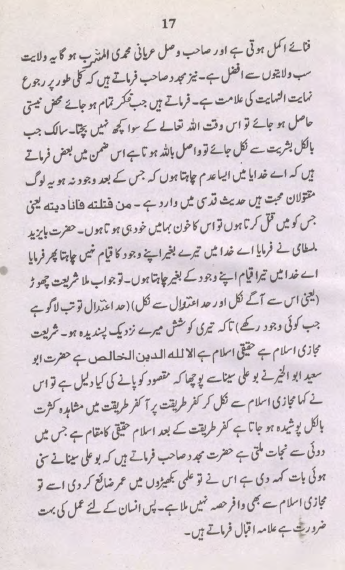 17
فنائے اکمل ہوتی ہے اور صاحب وصل عریانی محمدی المشرب ہو گا یہ ولایت
سب ولایتوں سے افضل ہے۔ نیز مجدد صاحب فرماتے ہیں کہ کلی طور پر رجوع
نہایت النہایت کی علامت ہے۔ فرماتے ہیں جب تفکر تمام ہو جائے محض نیستی
حاصل ہو جائے تو اس وقت اللہ تعالے کے سوا کچھ نہیں بچتا۔ سالک جب
بالکل بشریت سے نکل جائے تو واصل باللہ ہوتا ہے اس ضمن میں بعض فرماتے
ہیں کہ اے خدایا میں ایسا عدم چاہتا ہوں کہ جس کے بعد وجود نہ ہو یہ لوگ
مقتولان محبت ہیں حدیث قدسی میں وارد ہے۔ من قتلته فانا ديته یعنی
جس کو میں قتل کرتا ہوں تو اس کا خون بہا میں خود ہی ہوتا ہوں۔ حضرت بایزید
بسطامی نے فرمایا اے خدا میں تیرے بغیر اپنے وجود کا قیام نہیں چاہتا پھر فرمایا
اے خدا میں تیرا قیام اپنے وجود کے بغیر چاہتا ہوں۔ تو جواب ملا شریعت چھوڑ
(یعنی اس سے آگے نکل اور حد اعتدال سے نکل) (حد اعتدال تو تب لاگو ہے
جب کوئی وجود رکھے) تاکہ تیری کوشش میرے نزدیک پسندیدہ ہو۔ شریعت
مجازی اسلام ہے حقیقی اسلام ہے الا لله الدين الخالص ہے حضرت ابو
سعید ابوالخیر نے بو علی سینا سے پوچھا کہ مقصود کو پانے کی کیا دلیل ہے تو اس
نے کہا مجازی اسلام سے نکل کر کفر طریقت پر آ کفر طریقت میں مشاہدہ کثرت
بالکل پوشیدہ ہو جاتا ہے کفر طریقت کے بعد اسلام حقیقی کا مقام ہے جس میں
دوئی سے نجات ملتی ہے حضرت مجدد صاحب فرماتے ہیں کہ بو علی سینا نے سنی
ہوئی بات کہہ دی ہے اس نے تو علمی بکھیڑوں میں عمر ضائع کر دی اسے تو
مجازی اسلام سے بھی وافر حصہ نہیں ملا ہے۔ پس انسان کے لئے عمل کی بہت
ضرورت ہے علامہ اقبال فرماتے ہیں۔